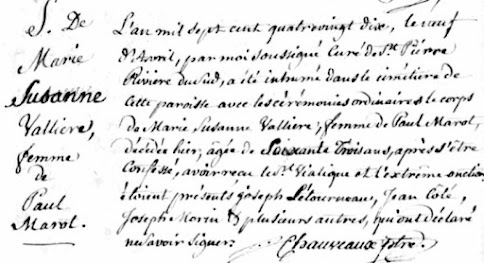 S. De
Marie
Susanne
Valliere,
femme
de
Paul
Marot.
L'an mil sept cent quatrevingt dix, le neuf
d'Avril, par moi soussigné Curé de St. Pierre
Riviere du Sud, a été inhumé dans le cimetiére de
Cette paroisse avec les cérémonies ordinaires le corps
de Marie Susanne Valliere, femme de Paul Marot,
décédée hier, agée de Soixante Trois ans, après s'être
Confessé, avoir recu le St. Viatique et l'extrême onction,
étoient présents Joseph Létourneau, Jean Coté,
Joseph Morin & plusieurs autres, qui ont déclaré
ne savoir signer. Chauveaux ptre.